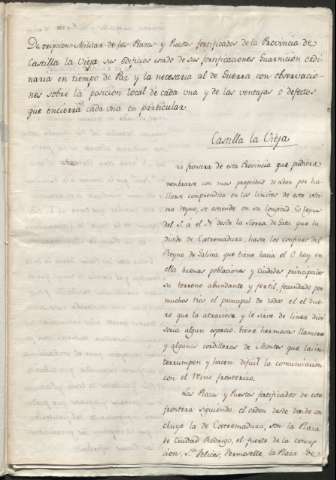 Descripcion Militar de las Plazas y Puestos fortificados de la Provincia de
Castilla la Vieja sus edificios estado de sus fortificaciones Guarnicion ordi-
naria en tiempo de Paz y la necesaria al de Guerra con observacio-
nes sobre la posicion local de cada una y de las ventajas o defectos
que encierra cada una en particular.
Castilla la Vieja
La frontera de esta Provincia que pudiera
nombrarse con mas propiedad de Leon por ha-
llarse comprendida en los limites de este anti-
guo Reyno, se extiende en su longitud leguas
del S. a el N. desde la Sierra de Gata que la
divide de Extremadura, hasta los confines del
Reyno de Galicia que tiene hacia el O. hay en
ella buenas poblaciones y Ciudades principales
su terreno abundante y fertil, fecundado por
muchos rios el principal de ellos el due-
ro que la atraviesa y le sirve de linea divi-
soria algun espacio. tiene hermosas llanuras
y algunas cordilleras de Montes que la in-
terrumpen y hacen dificil la comunicacion
con el Reyno fronterizo.
Las Plazas y Puestos fortificados de esta
frontera siguiendo el orden desde donde con-
cluyó la de Extremadura, son la Plaza
de Ciudad Rodrigo, el fuerte de la concep-
cion, Sn. Felices, Fermoselle, la Plaza de